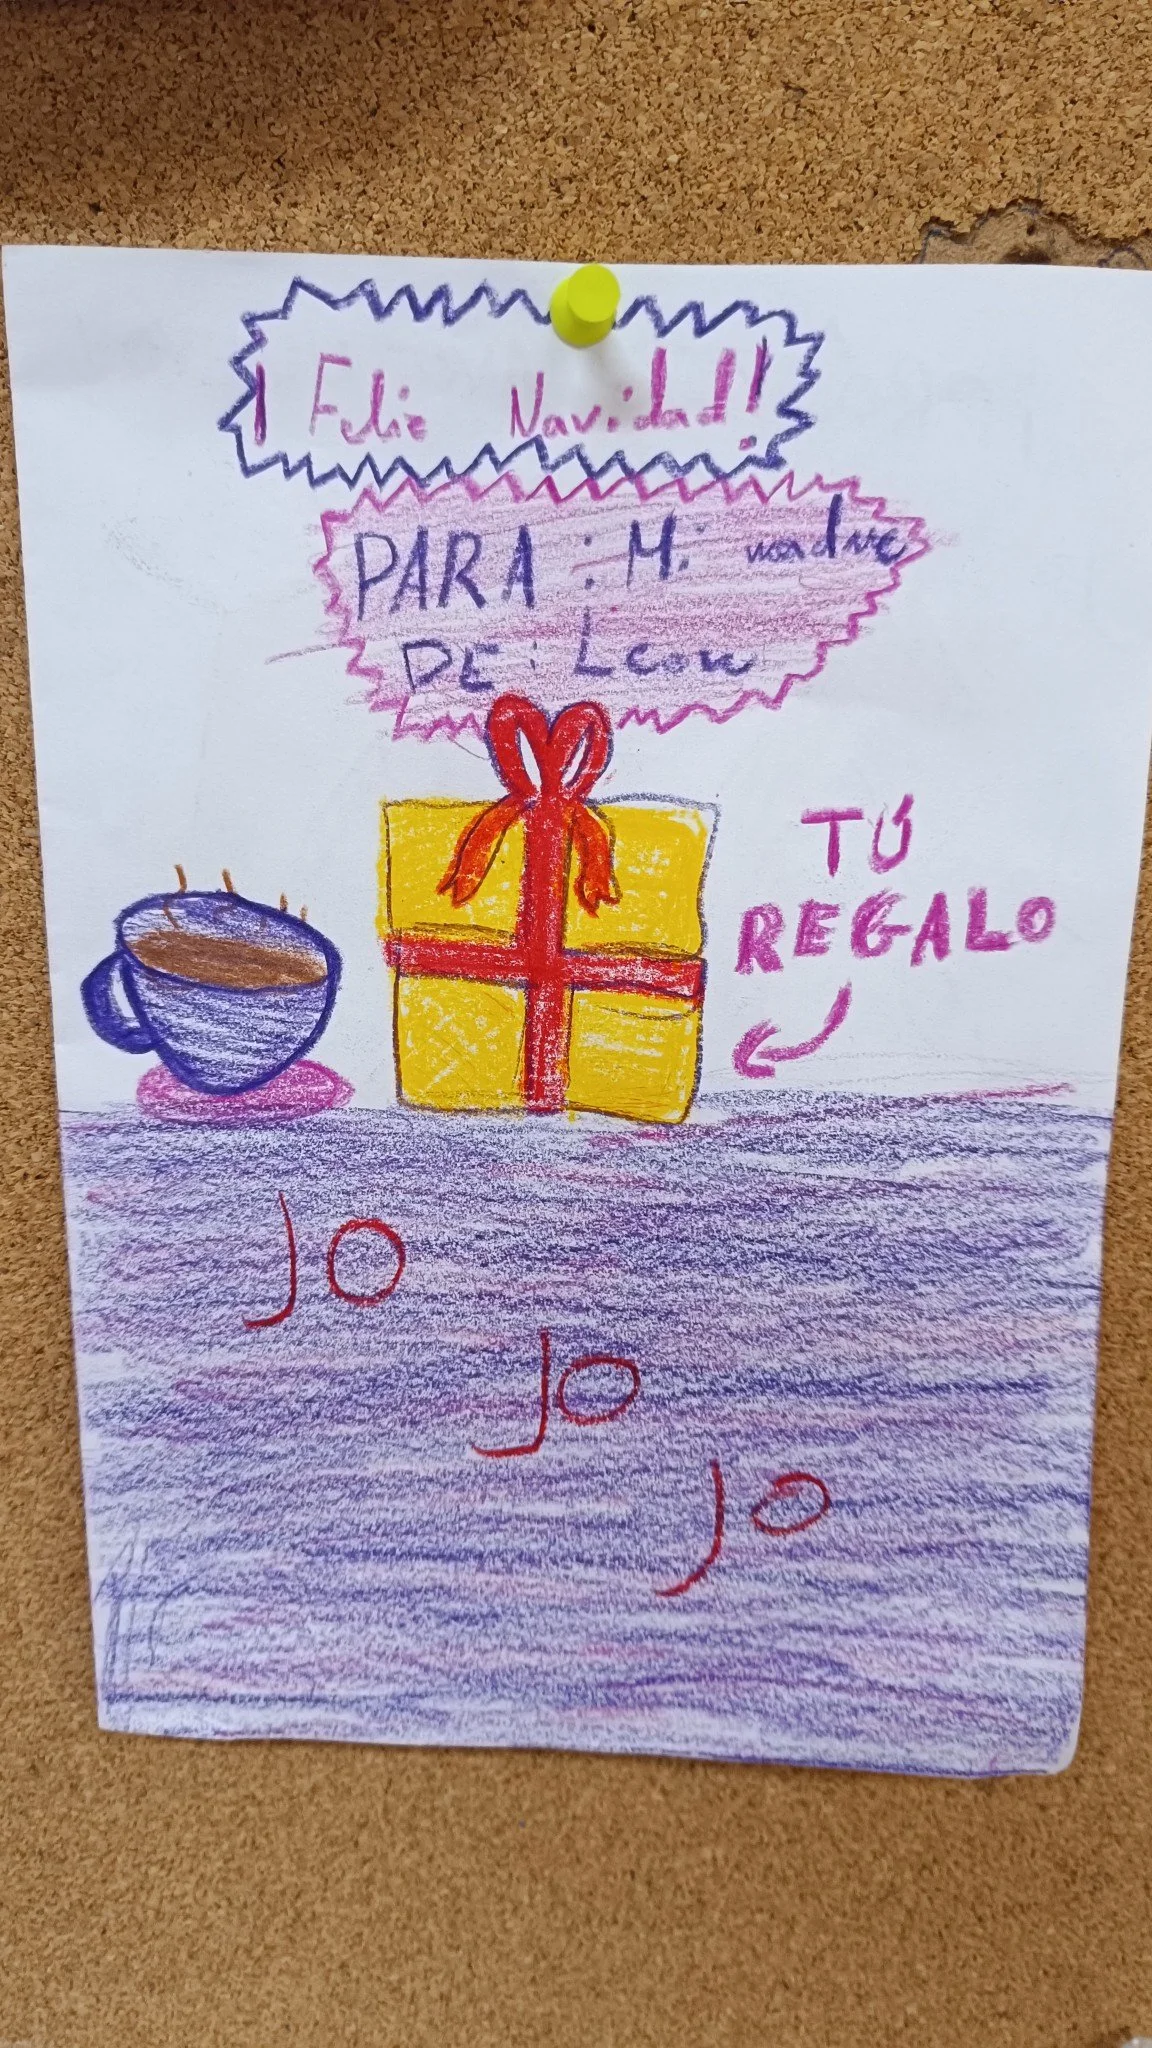 ¡Feliz Navidad!
PARA: Mi madre
DE: Leon
TÚ
REGALO
JO
JO
JO